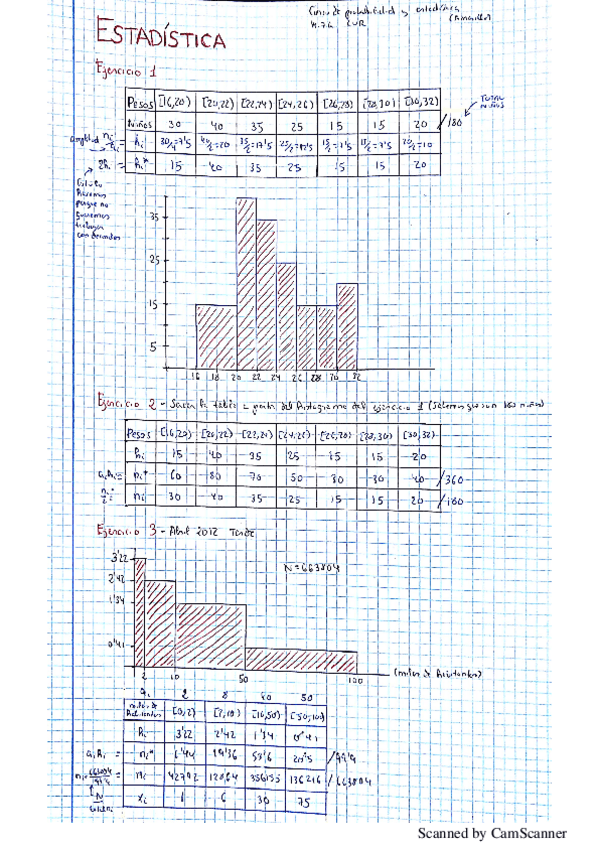 Curso de probabilidad y estadística
(Amarillo)
ESTADÍSTICA
Ejercicio 1
Pesos [16,20) [20,22) [22,24) [24,26) [26,28) [28,30) [30,32)
Niños 30 40 35 25 15 15 20 /180
TOTAL NIÑOS
amplitud ni/ai = hi 30/4=7'5 40/2=20 35/2=17'5 25/2=12'5 15/2=7'5 15/2=7'5 20/2=10
2hi = hi* 15 40 35 25 15 15 20
porque no
queremos
trabajar
con decimales
35
25
15
5
16 18 20 22 24 26 28 30 32
Ejercicio 2 - Sacar la tabla a partir del histograma del ejercicio 1 (Sabemos que son 180 niños)
Pesos [16,20) [20,22) [22,24) [24,26) [26,28) [28,30) [30,32)
hi 15 40 35 25 15 15 20
aihi = ni* 60 80 70 50 30 30 40 /360
ni 30 40 35 25 15 15 20 /180
Ejercicio 3 - Abril 2012 Tarde
N = 663804
3'22
2'42
1'34
0'41
2 10 50 100 (miles de habitantes)
ai 2 8 40 50
[0,2) [2,10) [10,50) [50,100)
hi 3'22 2'42 1'34 0'41
aihi = ni* 6'44 19'36 53'6 20'5 /99'9
ni 356155 136216 /663804
xi 1 6 30 75
Scanned by CamScanner